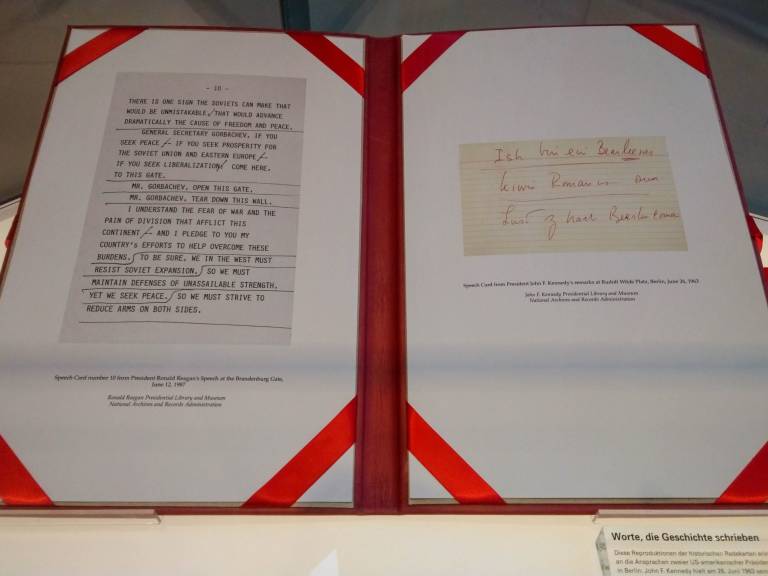 - 10 -
THERE IS ONE SIGN THE SOVIETS CAN MAKE THAT
WOULD BE UNMISTAKABLE, THAT WOULD ADVANCE
DRAMATICALLY THE CAUSE OF FREEDOM AND PEACE.
GENERAL SECRETARY GORBACHEV, IF YOU
SEEK PEACE -- IF YOU SEEK PROSPERITY FOR
THE SOVIET UNION AND EASTERN EUROPE --
IF YOU SEEK LIBERALIZATION, COME HERE,
TO THIS GATE.
MR. GORBACHEV, OPEN THIS GATE.
MR. GORBACHEV, TEAR DOWN THIS WALL.
I UNDERSTAND THE FEAR OF WAR AND THE
PAIN OF DIVISION THAT AFFLICT THIS
CONTINENT -- AND I PLEDGE TO YOU MY
COUNTRY'S EFFORTS TO HELP OVERCOME THESE
BURDENS. TO BE SURE, WE IN THE WEST MUST
RESIST SOVIET EXPANSION. SO WE MUST
MAINTAIN DEFENSES OF UNASSAILABLE STRENGTH.
YET WE SEEK PEACE. SO WE MUST STRIVE TO
REDUCE ARMS ON BOTH SIDES.
Speech Card number 10 from President Ronald Reagan's Speech at the Brandenburg Gate,
June 12, 1987
Ronald Reagan Presidential Library and Museum
National Archives and Records Administration
Ish bin ein Bearleener
kiwis Romanus sum
Lust z nach Bearlin
Speech Card from President John F. Kennedy's remarks at Rudolf Wilde Platz, Berlin, June 26, 1963
John F. Kennedy Presidential Library and Museum
National Archives and Records Administration
Worte, die Geschichte schrieben
Diese Reproduktionen der historischen Redekarten
an die Ansprachen zweier US-amerikanischer
in Berlin. John F. Kennedy hielt am 26. Juni 1963